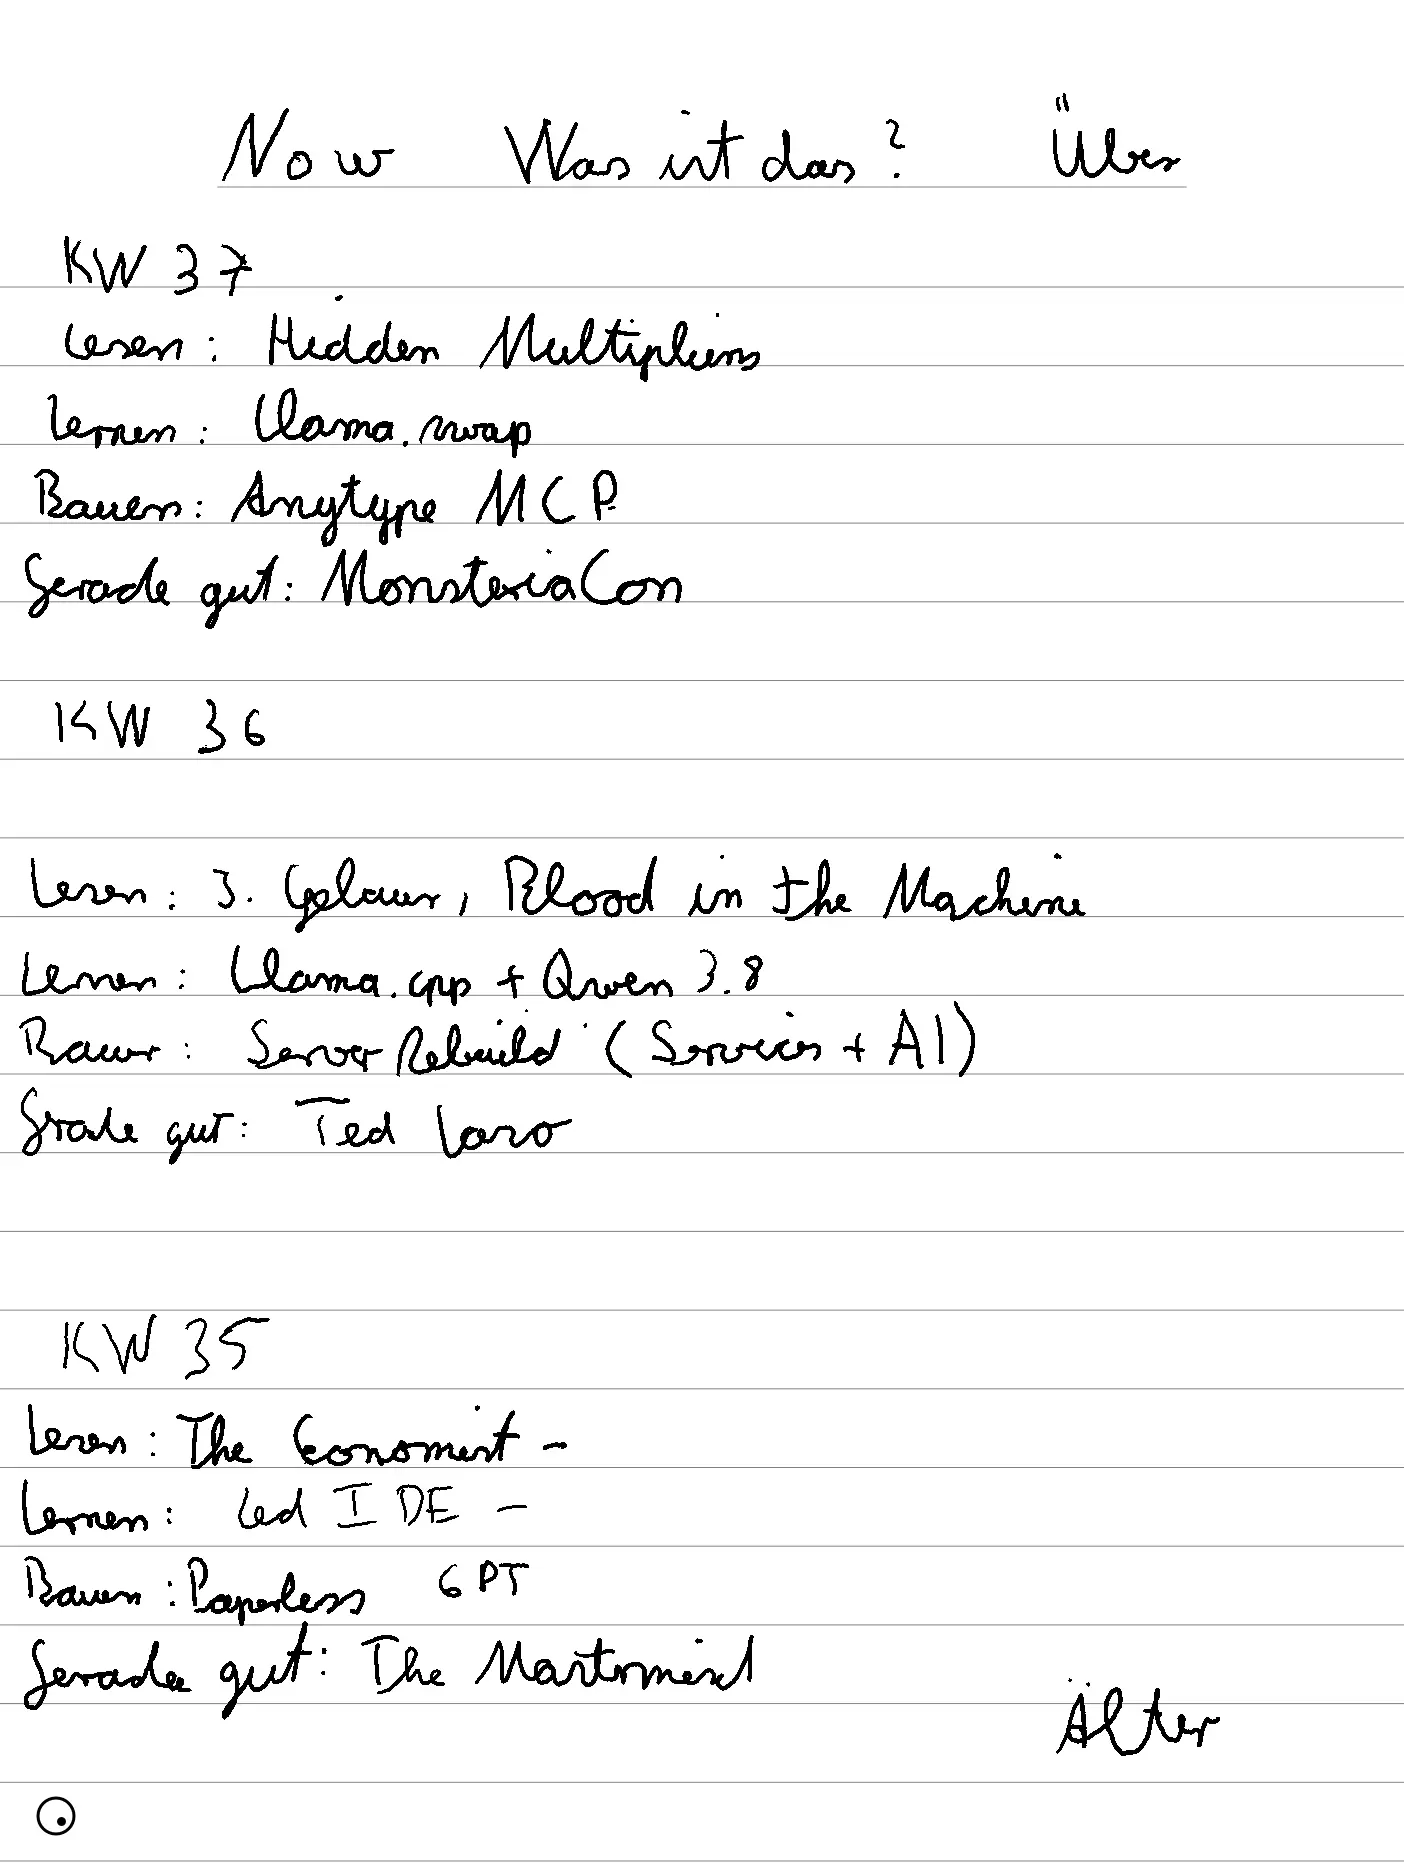 Now Was ist das? Über
KW 37
Lesen: Hidden Multipliers
Lernen: Llama.swap
Bauen: Anytype MCP
Gerade gut: MonsteriaCon
KW 36
Lesen: J. Blood in the Machine
Lernen: Llama.cpp + Qwen 3.8
Bauen: Server Rebuild (Services + AI)
Gerade gut: Ted Lasso
KW 35
Lesen: The Economist -
Lernen: Zed IDE -
Bauen: Paperless GPT
Gerade gut: The
Älter